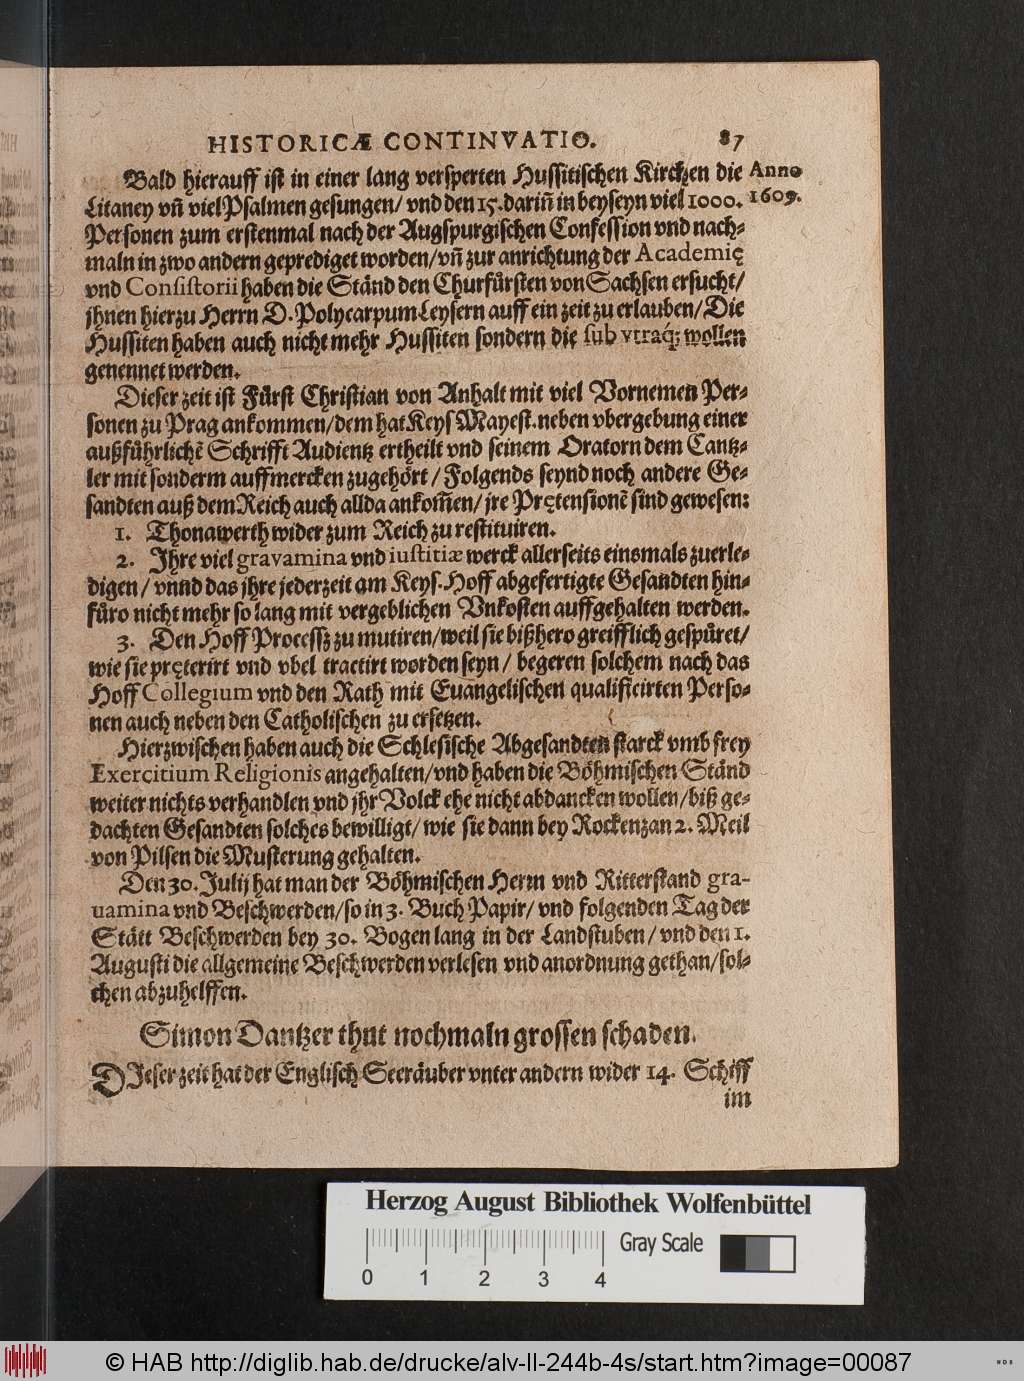 HISTORICÆ CONTINVATIO. 87
Bald hierauff ist in einer lang versperten Hussitischen Kirchen die Anno
Litaney vn̄ viel Psalmen gesungen/ vnd den 15. darin̄ in beyseyn viel 1000. 1609.
Personen zum erstenmal nach der Augspurgischen Confession vnd nach-
maln in zwo andern geprediget worden/ vn̄ zur anrichtung der Academię
vnd Consistorii haben die Ständ den Churfürsten von Sachsen ersucht/
jhnen hierzu Herrn D. Polycarpum Leysern auff ein zeit zu erlauben/ Die
Hussiten haben auch nicht mehr Hussiten sondern die sub vtraq́; wollen
genennet werden.
Dieser zeit ist Fürst Christian von Anhalt mit viel Vornemen Per-
sonen zu Prag ankommen/ dem hat Keys Mayest. neben vbergebung einer
außführlichē Schrifft Audientz ertheilt vnd seinem Oratorn dem Cantz-
ler mit sonderm auffmercken zugehört/ Folgends seynd noch andere Ge-
sandten auß dem Reich auch allda ankom̄en/ jre Prętensionē sind gewesen:
1. Thonawerth wider zum Reich zu restituiren.
2. Ihre viel gravamina vnd iustitiæ werck allerseits einsmals zuerle-
digen/ vnnd das jhre jederzeit am Keys. Hoff abgefertigte Gesandten hin-
füro nicht mehr so lang mit vergeblichen Vnkosten auffgehalten werden.
3. Den Hoff Processz zu mutiren/ weil sie bißhero greifflich gespüret/
wie sie pręterirt vnd vbel tractirt worden seyn/ begeren solchem nach das
Hoff Collegium vnd den Rath mit Euangelischen qualificirten Perso-
nen auch neben den Catholischen zu ersetzen.
Hierzwischen haben auch die Schlesische Abgesandten starck vmb frey
Exercitium Religionis angehalten/ vnd haben die Böhmischen Ständ
weiter nichts verhandlen vnd jhr Volck ehe nicht abdancken wollen/ biß ge-
dachten Gesandten solches bewilligt/ wie sie dann bey Rockenzan 2. Meil
von Pilsen die Musterung gehalten.
Den 30. Julij hat man der Böhmischen Herrn vnd Ritterstand gra-
uamina vnd Beschwerden/ so in 3. Buch Papir/ vnd folgenden Tag der
Stätt Beschwerden bey 30. Bogen lang in der Landstuben/ vnd den 1.
Augusti die allgemeine Beschwerden verlesen vnd anordnung gethan/ sol-
chen abzuhelffen.
Simon Dantzer thut nochmaln grossen schaden.
DIeser zeit hat der Englisch Seeräuber vnter andern wider 14. Schiff
im
Herzog August Bibliothek Wolfenbüttel
0 1 2 3 4
Gray Scale
© HAB http://diglib.hab.de/drucke/alv-ll-244b-4s/start.htm?image=00087